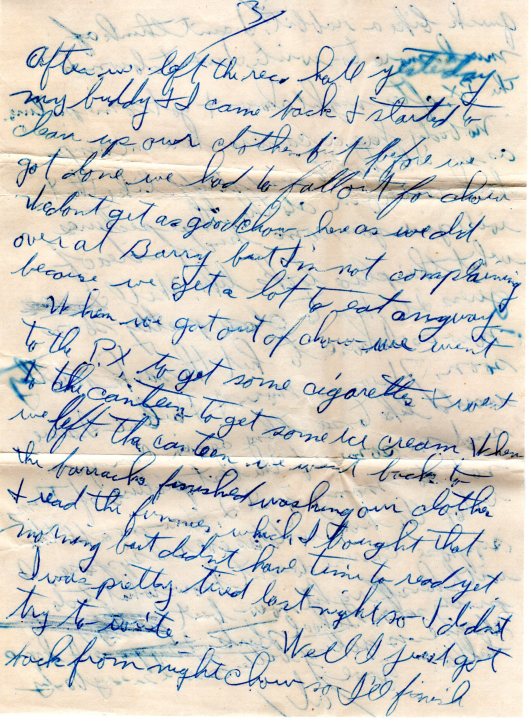 3
After we left the rec hall yesterday
my buddy & I came back & started to
clean up our clothes but before we
got done we had to fallout for chow
We dont get as good chow here as we did
over at Barry but I'm not complaining
because we get a lot to eat anyway.
When we got out of chow we went
to the P.X. to get some cigarettes & went
to the canteen to get some ice cream. When
we left the canteen we went back to
the barracks, finished washing our clothes
& read the funnies which I bought that
morning but didn't have time to read yet.
I was pretty tired last night so I didn't
try to write.
Well I just got
back from night chow so I'll finish